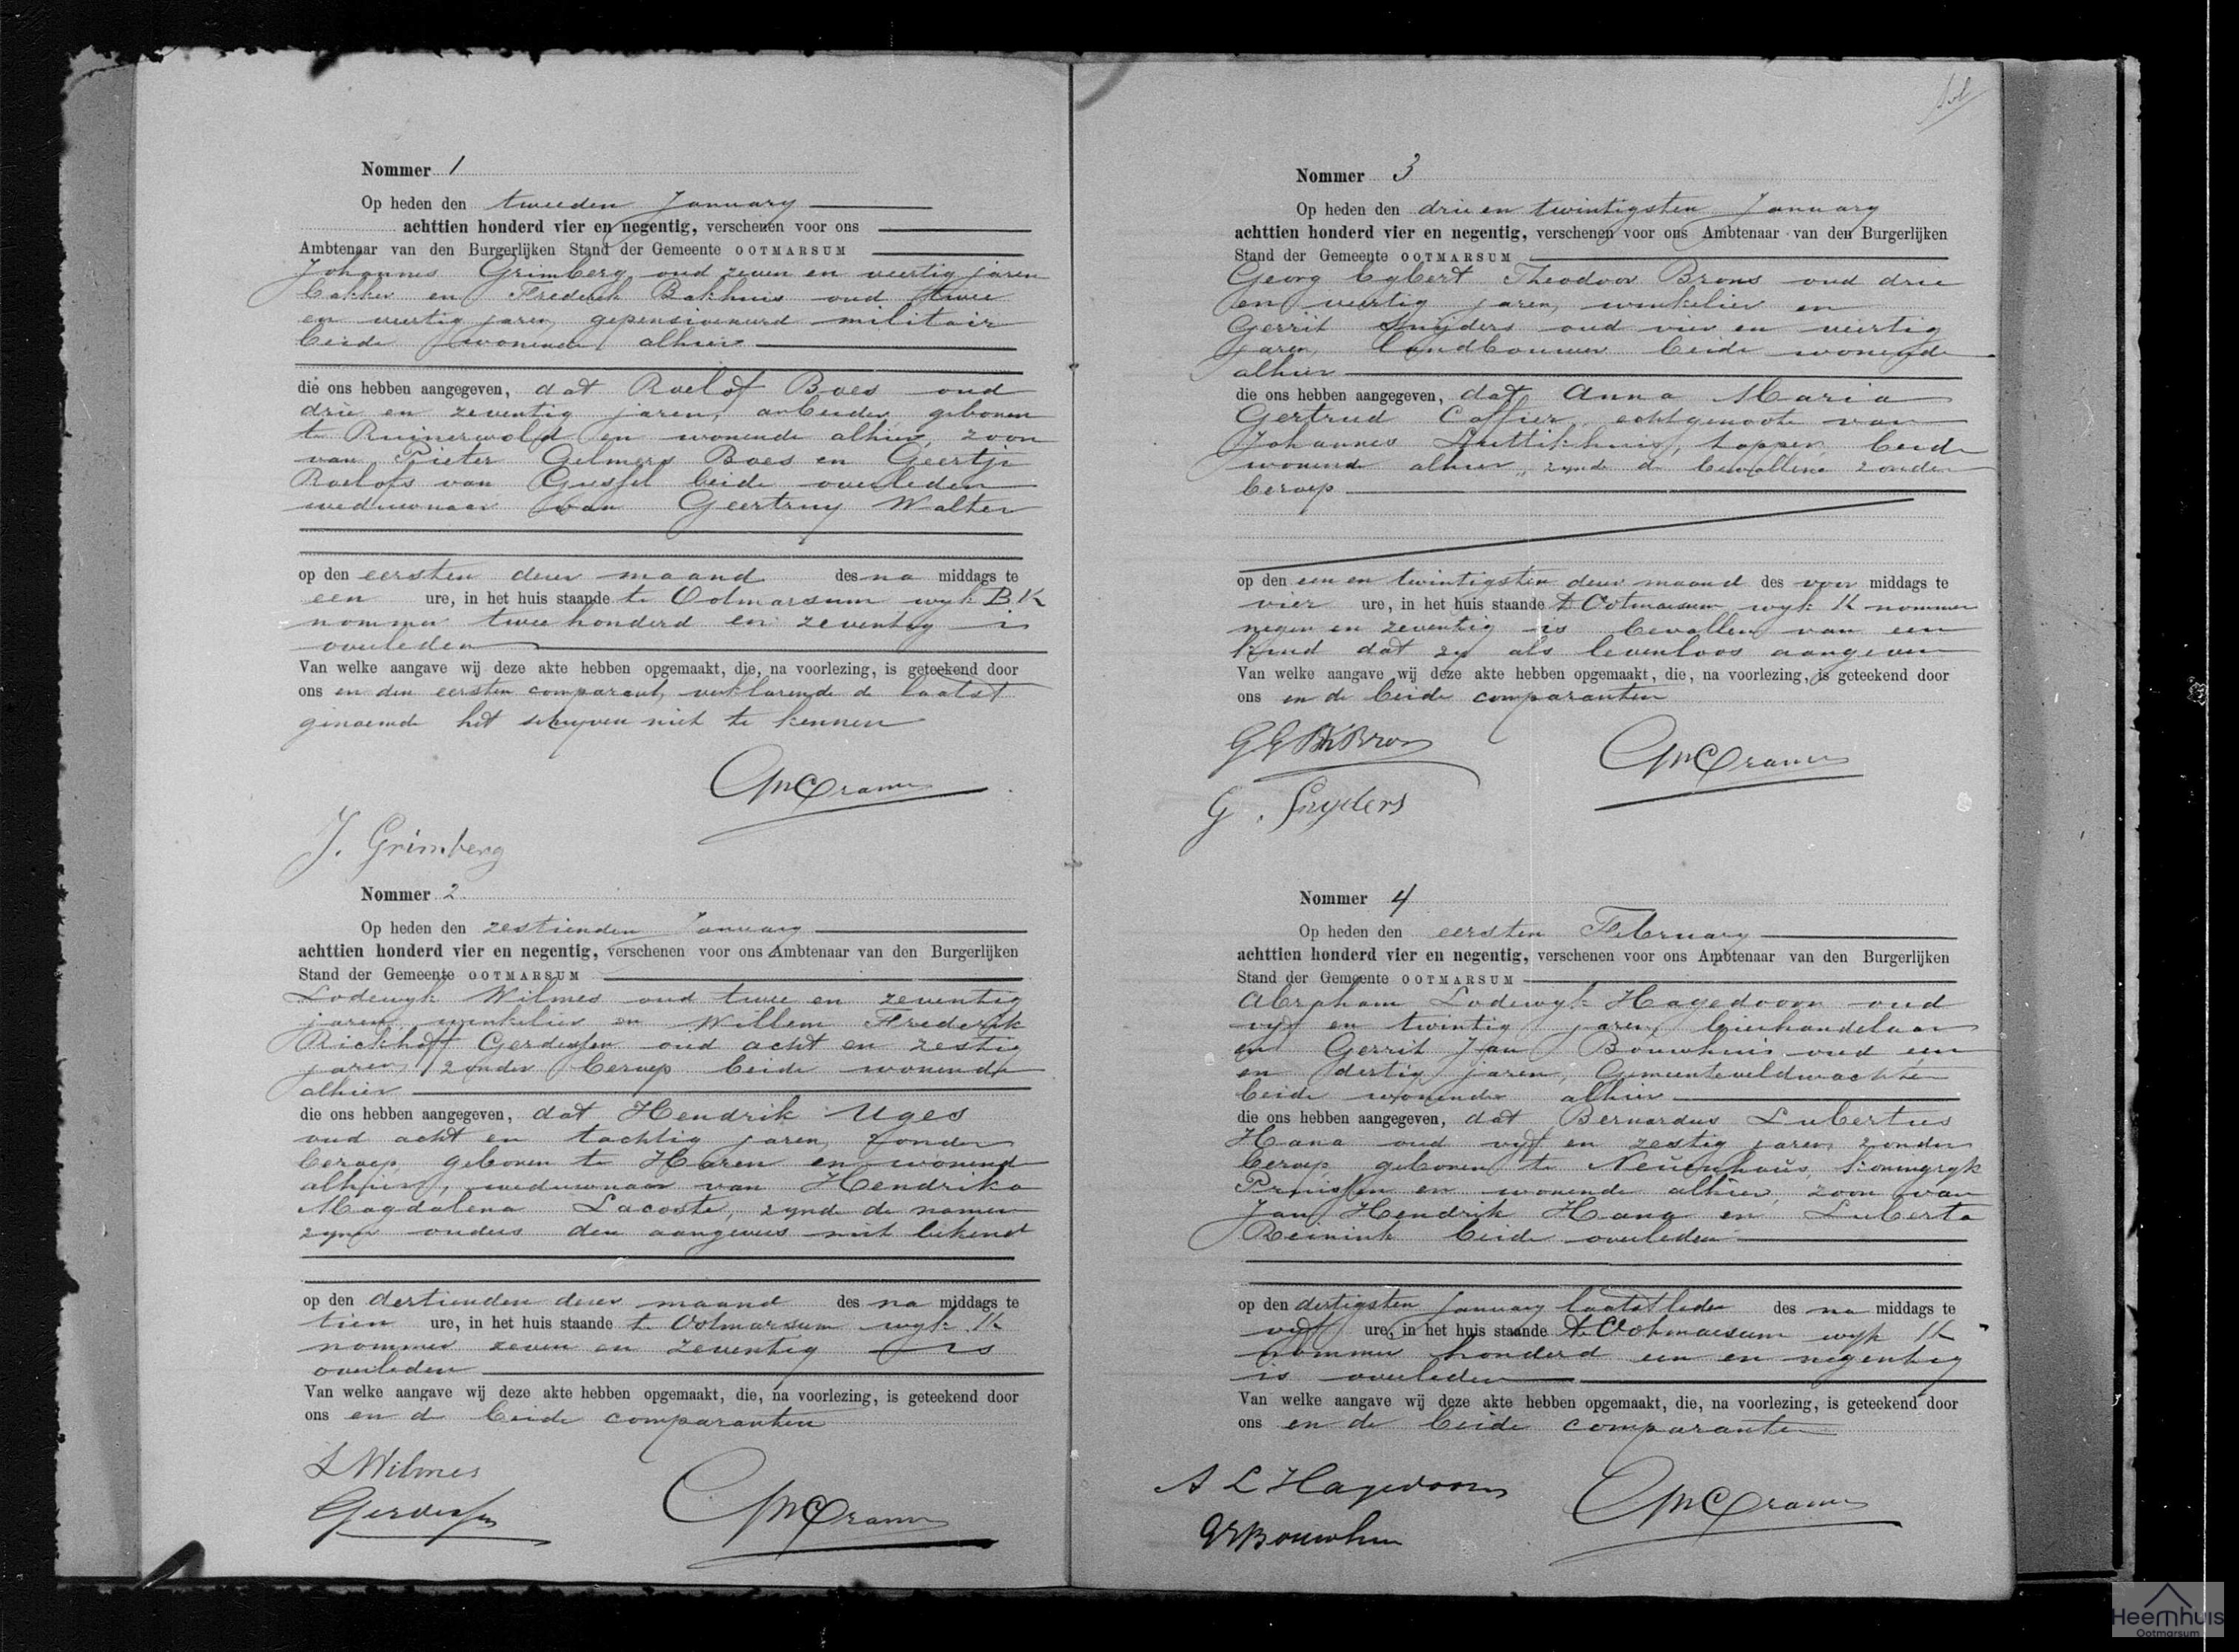 Nommer 1
Op heden den tweeden January
achttien honderd vier en negentig, verschenen voor ons
Ambtenaar van den Burgerlijken Stand der Gemeente OOTMARSUM
Johannes Grimberg oud zeven en veertig jaren
bakker en Frederik Bakhuis oud twee
en veertig jaren, gepensioneerd militair
beide wonende alhier
die ons hebben aangegeven, dat Roelof Boes oud
drie en zeventig jaren, arbeider, geboren
te Ruinerwold en wonende alhier, zoon
van Pieter Gelmers Boes en Geertje
Roelofs van Gijssel beide overleden
weduwnaar van Geertruy Walter
op den eersten dezer maand des na middags te
een ure, in het huis staande te Ootmarsum wyk B K
nommer twee honderd en zeventig is
overleden
Van welke aangave wij deze akte hebben opgemaakt, die, na voorlezing, is geteekend door
ons en den eersten comparant, verklarende de laatst
genoemde het schryven niet te kennen
Cramer
J. Grimberg
Nommer 2.
Op heden den zestienden January
achttien honderd vier en negentig, verschenen voor ons Ambtenaar van den Burgerlijken
Stand der Gemeente OOTMARSUM
Lodewyk Wilmes oud twee en zeventig
jaren, winkelier en Willem Frederik
Rickhoff Gerdessen oud acht en zestig
jaren, zonder beroep beide wonende
alhier
die ons hebben aangegeven, dat Hendrik Uges
oud acht en tachtig jaren, zonder
beroep, geboren te Haren en wonend
alhier, weduwnaar van Hendrika
Magdalena Lacoste, zynde de namen
zyner ouders den aangevers niet bekend
op den dertienden dezer maand des na middags te
tien ure, in het huis staande te Ootmarsum wyk K
nommer zeven en zeventig is
overleden
Van welke aangave wij deze akte hebben opgemaakt, die, na voorlezing, is geteekend door
ons en de beide comparanten
L Wilmes
Gerdessen
Cramer
Nommer 3
Op heden den drie en twintigsten January
achttien honderd vier en negentig, verschenen voor ons Ambtenaar van den Burgerlijken
Stand der Gemeente OOTMARSUM
Georg Egbert Theodoor Brons oud drie
en veertig jaren, winkelier en
Gerrit Snijders oud vier en veertig
jaren, landbouwer beide wonende
alhier
die ons hebben aangegeven, dat Anna Maria
Gertrud Coffier, echtgenoote van
Johannes Luttikhuis, tapper, beide
wonende alhier, zynde de bevallene zonder
beroep
op den een en twintigsten dezer maand des voor middags te
vier ure, in het huis staande te Ootmarsum wyk K nommer
negen en zeventig is bevallen van een
kind dat zy als levenloos aangeven
Van welke aangave wij deze akte hebben opgemaakt, die, na voorlezing, is geteekend door
ons en de beide comparanten
Brons
Cramer
G. Snyders
Nommer 4
Op heden den eersten February
achttien honderd vier en negentig, verschenen voor ons Ambtenaar van den Burgerlijken
Stand der Gemeente OOTMARSUM
Abraham Lodewyk Hagedoorn oud
vyf en twintig jaren, bierhandelaar
en Gerrit Jan Bouwhuis oud een
en dertig jaren, Gemeenteveldwachter
beide wonende alhier
die ons hebben aangegeven, dat Bernardus Lubertus
Hana oud vyf en zestig jaren, zonder
beroep, geboren te Neuenhaus, Koningryk
Pruissen en wonende alhier, zoon van
Jan Hendrik Hana en Luberta
Reinink beide overleden
op den dertigsten January laatstleden des na middags te
vyf ure, in het huis staande te Ootmarsum wyk K
nommer honderd een en negentig
is overleden
Van welke aangave wij deze akte hebben opgemaakt, die, na voorlezing, is geteekend door
ons en de beide comparanten
A L Hagedoorn
Cramer
Bouwhuis
Heemhuis
Ootmarsum